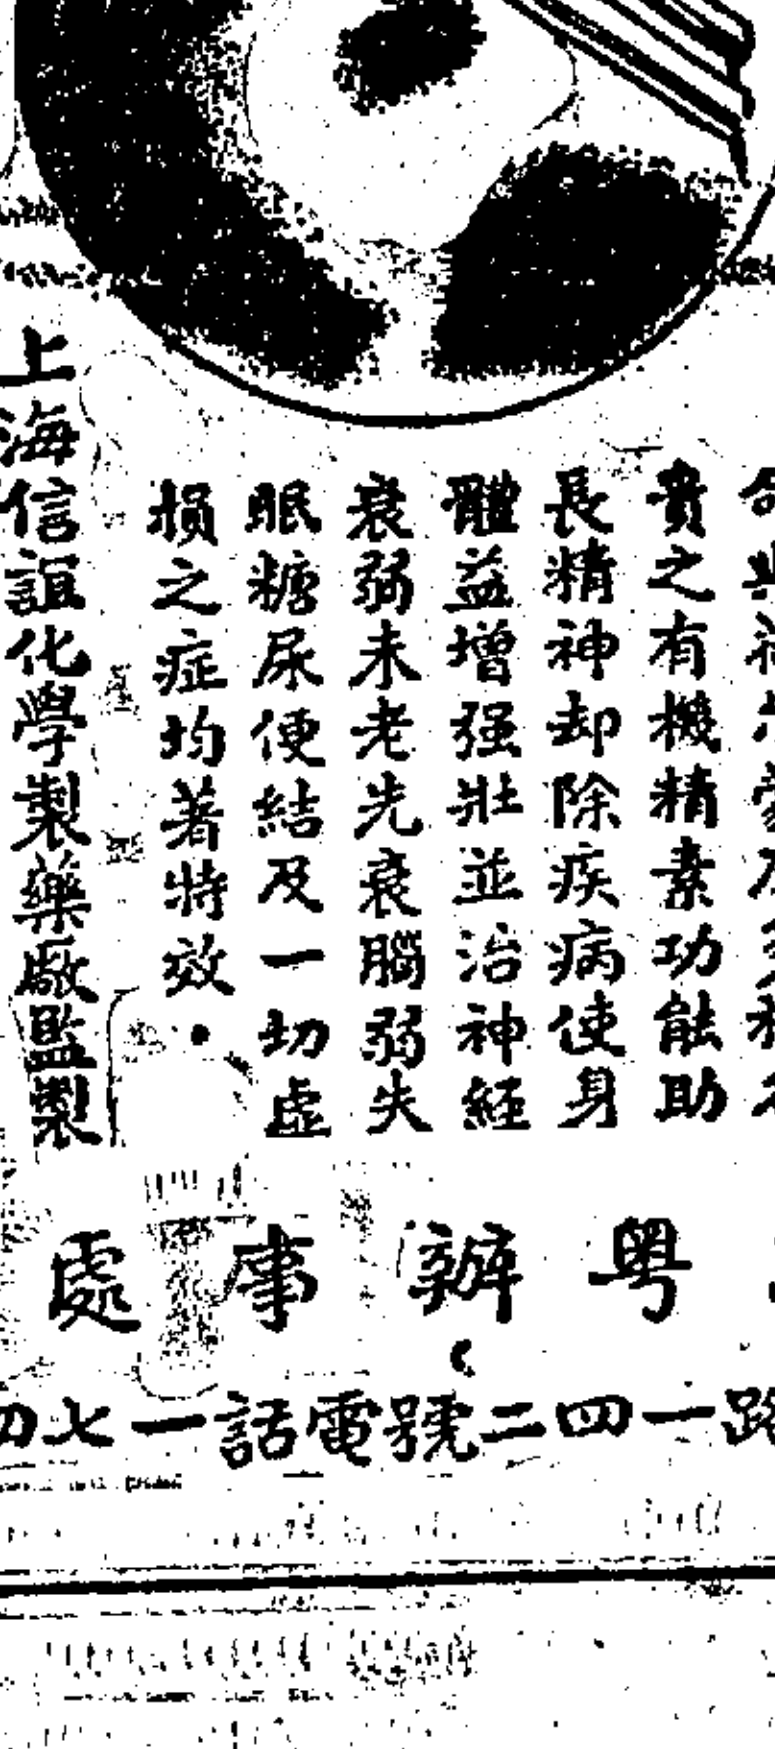 貴之有機精素功能助
長精神却除疾病使身
體益增强壯並治神經
衰弱未老先衰腦弱失
眠糖尿便結及一切虛
損之症均著特效.
上海信誼化學製藥廠監製
粤辦事處
路一四二號電話一七